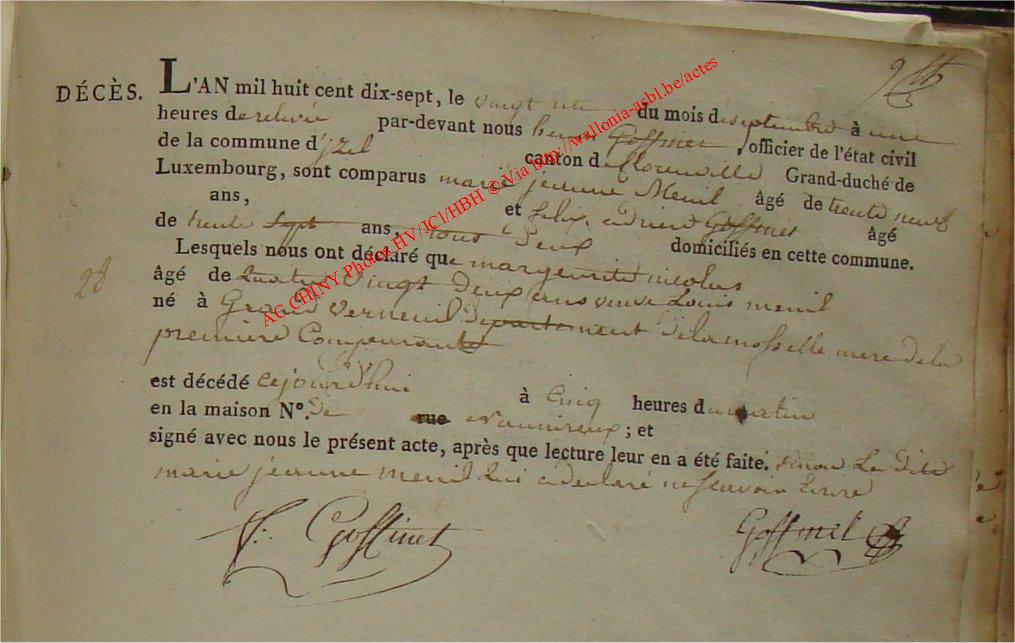 DÉCÈS.
L'AN mil huit cent dix-sept, le vingt du mois de septembre à une
heures de relevée par-devant nous henri Goffinet, officier de l'état civil
de la commune d'jzel canton de florenville Grand-duché de
Luxembourg, sont comparus marie jeanne Menil âgé de trente neuf
ans, et felix Goffinet âgé
de trente sept ans, tous deux domiciliés en cette commune.
Lesquels nous ont déclaré que margueritte nicolas
28
âgé de quatre vingt deux ans veuve Louis menil
né à Grand Verneuil departement de la mosselle mere de la
premiere Comparante
est décédé cejourd'hui à cinq heures du matin
en la maison N°. de rue ; et
signé avec nous le présent acte, après que lecture leur en a été faite. sinon La dite
marie jeanne menil qui a declaré ne scavoir Ecrire
f: Goffinet
Goffinet
AG CHINY Photos HV/JCl/HBH © Via http://wallonia-asbl.be/actes